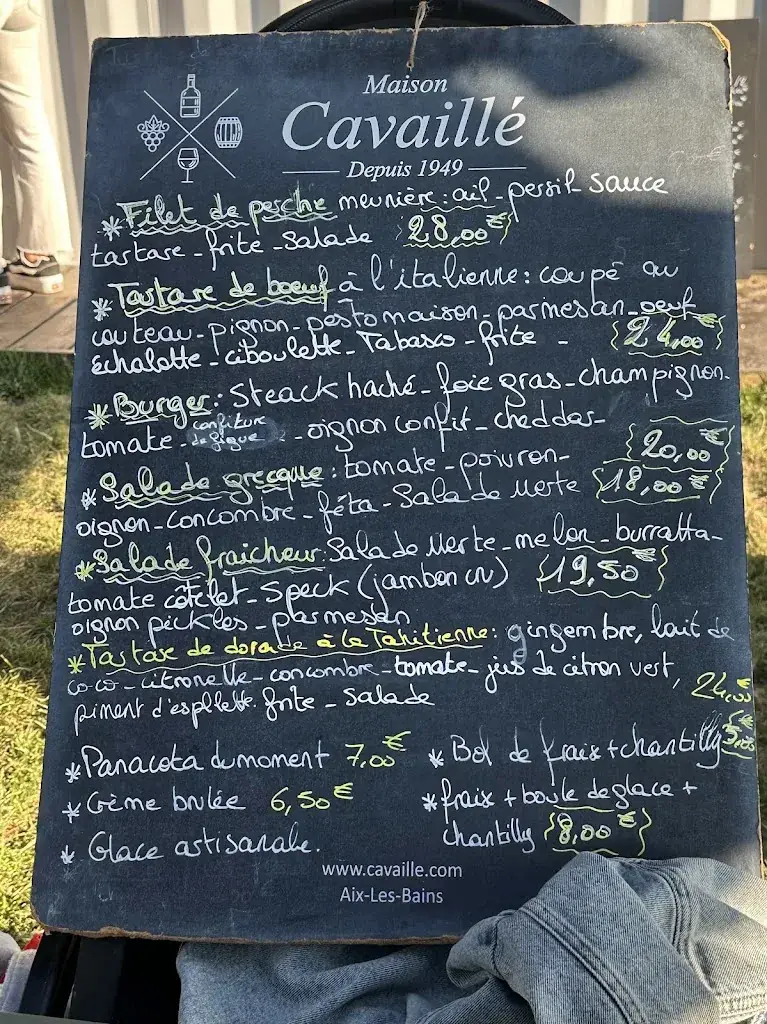 Maison
Cavaillé
Depuis 1949
* Filet de perche meunière : ail - persil sauce
tartare - frite - salade 28,00€
* Tartare de boeuf à l'italienne : coupé au
couteau - pignon - pesto maison - parmesan - oeuf
échalotte - ciboulette - Tabasco - frite - 24,00€
* Burger : Steack haché - foie gras - champignon -
tomate - confiture de figue - oignon confit - cheddar - 20,00€
* Salade grecque : tomate - poivron -
oignon - concombre - féta - Salade Verte 18,00€
* Salade fraicheur : Salade Verte - melon - burratta -
tomate côtelet - Speck (jambon cru) 19,50€
oignon pickles - parmesan
* Tartare de dorade à la Tahitienne : gingembre, lait de
coco - citronelle - concombre - tomate - jus de citron vert,
piment d'espllette. frite - salade 24,00
* Panacota du moment 7,00€
* Bol de frais + chantilly
* Crème brulée 6,50€
* frais + boule de glace +
chantilly 8,00€
* Glace artisanale.
www.cavaille.com
Aix-Les-Bains